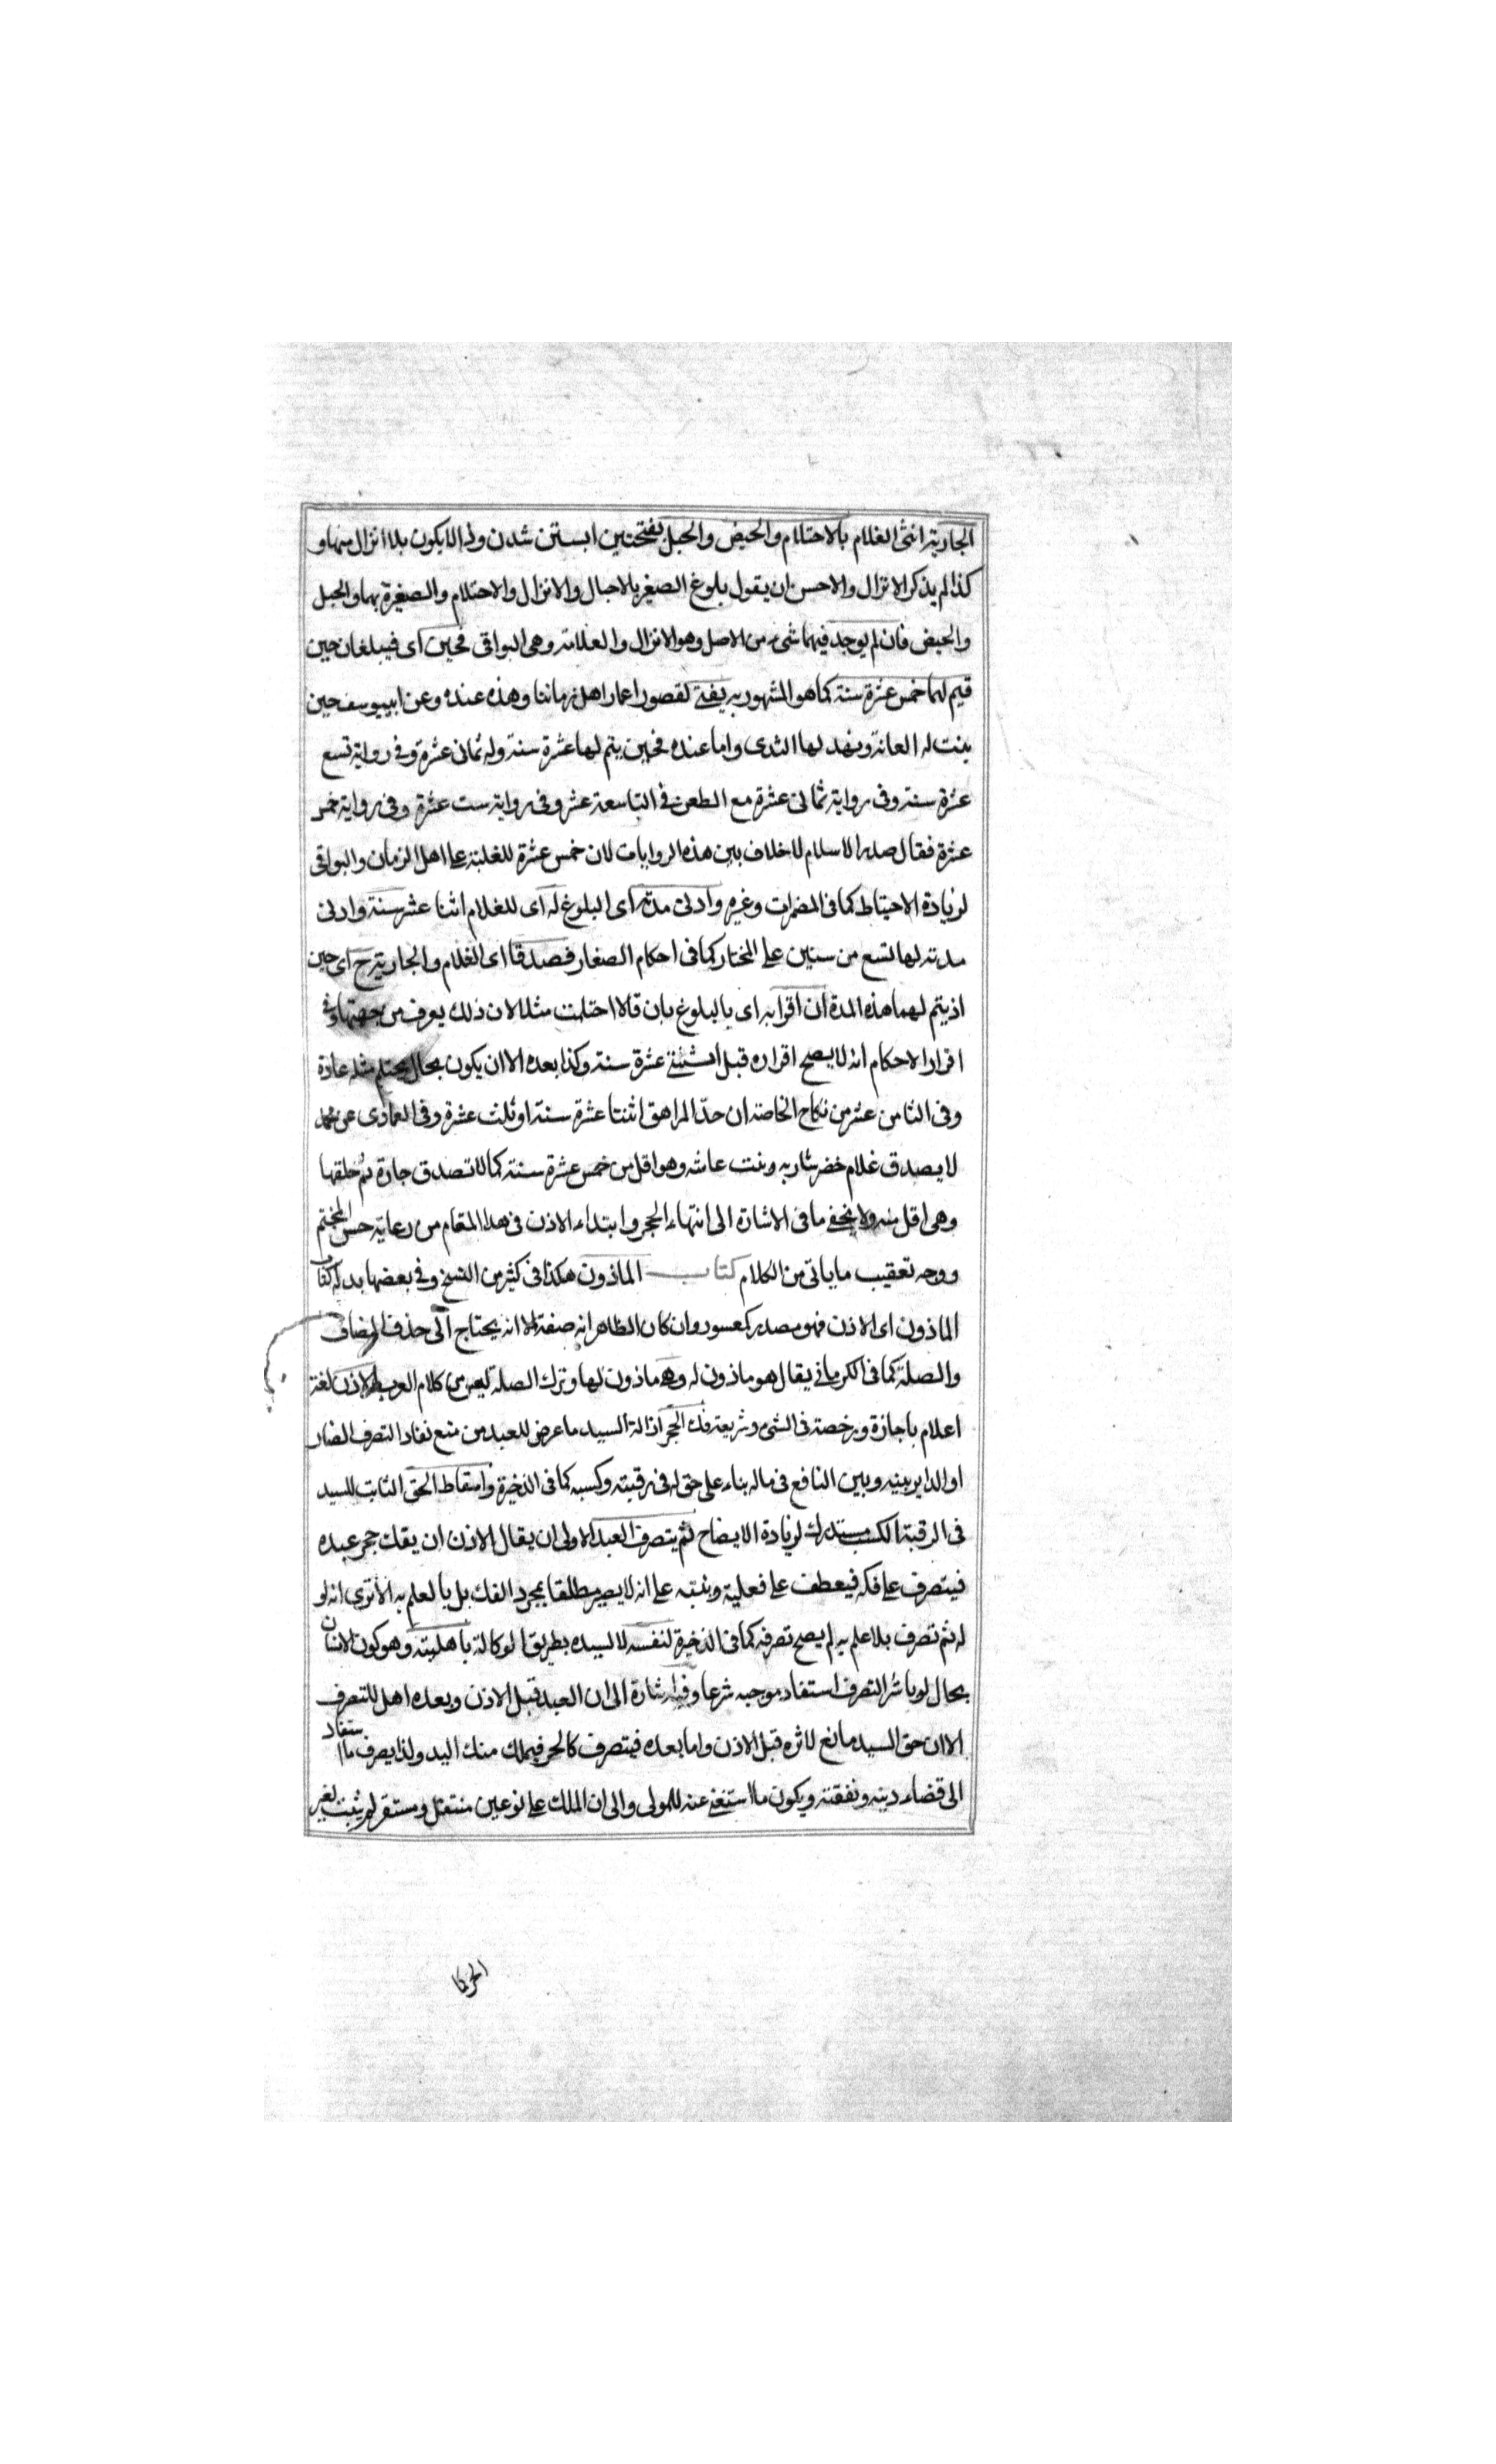 الجارية انثى الغلام بالاحتلام والحيض والحبل بفتحتين ابستن شدن ولد الا يكون بلا انزال منها و
كذا لم يذكر الانزال والاحسن ان يقول بلوغ الصغير بالاحبال والانزال والاحتلام والصغيرة بهما والحبل
والحيض فان لم يوجد فيهما شىء من الاصل وهو الانزال والعلامة وهى البواقى فحين اى فيبلغان حين
قيم لهما خمس عشرة سنة كما هو المشهور به يفتى لقصور اعمار اهل زماننا وهذه عنده وعن ابيوسف حين
ينبت له العانة وينهد لها الثدى واما عنده فحين يتم لها عشرة سنة وله ثمانى عشرة وفى رواية تسع
عشرة سنة وفى رواية ثمانى عشرة مع الطعن فى التاسعة عشر وفى رواية ست عشرة وفى رواية خمس
عشرة فقال صدر الاسلام لا خلاف بين هذه الروايات لان خمس عشرة للغلبة على اهل الزمان والبواقى
لزيادة الاحتياط كما فى المضمرات وغيره وادنى مدته اى البلوغ له اى للغلام اثنا عشر سنة وادنى
مدته لها تسع من سنين على المختار كما فى احكام الصغار فصدقا اى الغلام والجارية ح اى حين
اذ يتم لهما هذه المدة ان اقرا به اى بالبلوغ بان قالا احتلمت مثلا لان ذلك يعرف من جهتهما وفى
اقرار الاحكام انه لا يصح اقراره قبل اثنتى عشرة سنة وكذا بعده الا ان يكون بحال يحتلم مثله عادة
وفى الثامن عشر من نكاح الخاصة ان حد المراهق اثنتا عشرة سنة او ثلث عشرة وفى العمادى عن محمد
لا يصدق غلام خضر شاربه ونبت عانته وهو اقل من خمس عشرة سنة كما لا تصدق جارة تم خلقها
وهى اقل منه ولا يخفى ما فى الاشارة الى انتهاء الحجر وابتداء الاذن فى هذا المقام من رعاية حسن المختم
ووجه تعقيب ما ياتى من الكلام كتاب الماذون هكذا فى كثير من النسخ وفى بعضها بدله كتاب
الماذون اى الاذن فهو مصدر كمعسور وان كان الظاهر انه صفة الا انه يحتاج الى حذف المضاف
والصلة كما فى الكرمانى يقال هو ماذون له وهى ماذون لها وترك الصلة ليس من كلام العرب والاذن لغة
اعلام باجازة ورخصة فى الشىء وشريعة فك الحجر ازالة السيد ما عرض للعبد من منع نفاد التصرف الضار
او الداير بينه وبين النافع فى ماله بناء على حق له فى رقبته وكسبه كما فى الذخيرة واسقاط الحق الثابت للسيد
فى الرقبة الكسب مستدرك لزيادة الايضاح ثم يتصرف العبد الاولى ان يقال الاذن ان يفك حجر عبده
فيتصرف على فكه فيعطف على فعلية وينبه على انه لا يصير مطلقا بمجرد الفك بل بالعلم به الا ترى انه لو
له ثم تصرف بلا علم به لم يصح تصرفه كما فى الذخيرة لنفسه لا لسيده بطريق الوكالة باهليته وهو كون الانسان
بحال لو باشر التصرف استفاد موجبه شرعا وفيه اشارة الى ان العبد قبل الاذن وبعده اهل للتصرف
الا ان حق السيد مانع لاثره قبل الاذن واما بعده فيتصرف كالحر فيملك منك اليد ولذا يصرف ما استفاد
الى قضاء دينه ونفقته ويكون ما استغنى عنه للمولى والى ان الملك على نوعين منتقل ومستقر لم يثبت لغير
الحر كا